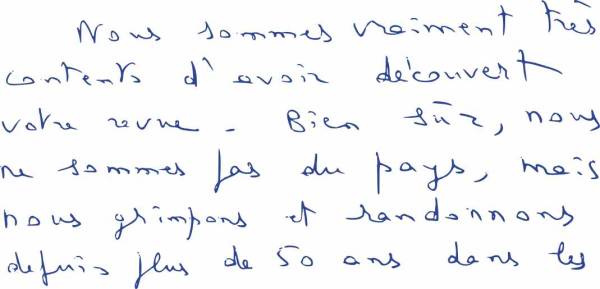 Nous sommes vraiment très
contents d'avoir découvert
votre revue. Bien sûr, nous
ne sommes pas du pays, mais
nous grimpons et randonnons
depuis plus de 50 ans dans les